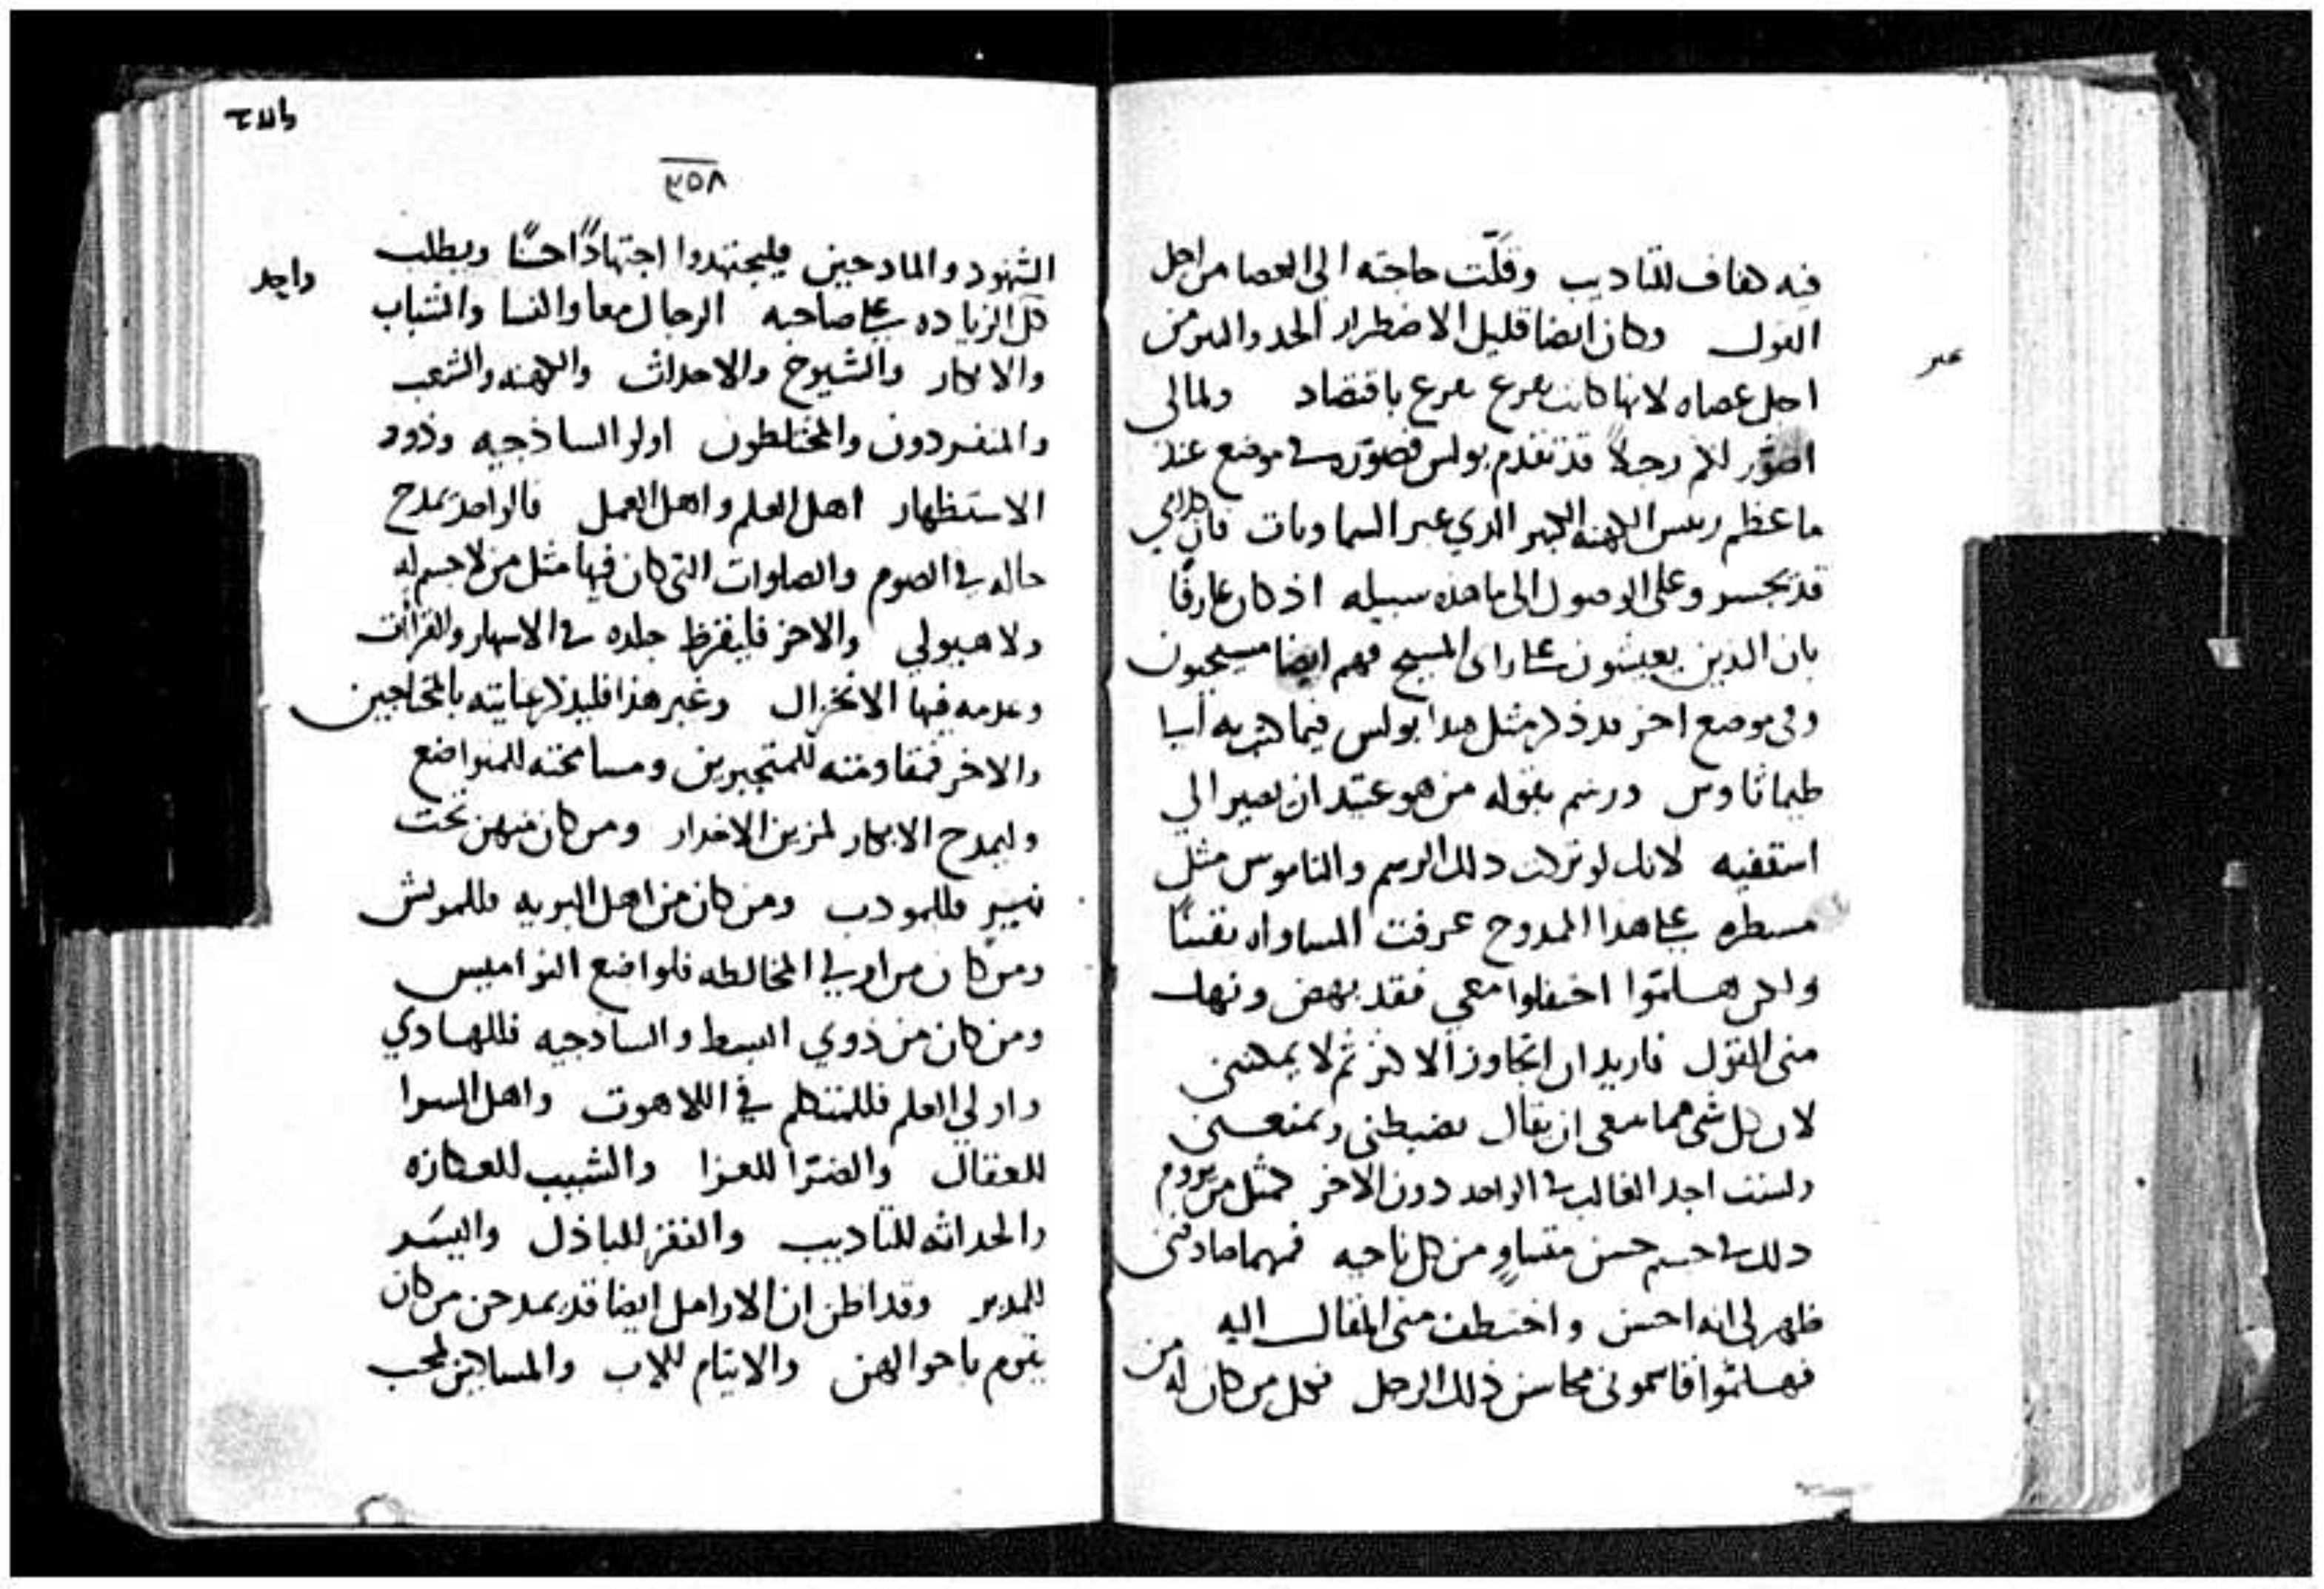 فيه كفاف للتاديب وقلّت حاجته الى العصا من اجل
القول وكان ايضا قليل الاضطرار الحد والبر من
احل عصاه لانها كانت تقرع تقرع باقتصاد ولمالي
اصوّر لكم رجلاً قد تقدم بولس فصوّره في موضع عند
ما عظم ريس الكهنه الكبير الذي عبر السماوات فان كلامي
قد يجسر وعلى الوصول الى ما هذه سبيله اذ كان عارفًا
بان الذين يعيشون على راى المسيح فهم ايضا مسيحيون
وفي موضع اخر قد ذكر مثل هذا بولس فيما كتب به اليا
طيماثاوس ورسم بقوله من هو عتيد ان يصير الي
اسقفيه لانك لو تركت ذلك الرسم والناموس مثل
مسطره على هذا الممدوح عرفت المساواه يقينًا
ولكن هلمّوا احتفلوا معي فقد بهض ونهك
مني القول فاريد ان اتجاوز الاكثر ثم لا يمكنني
لان كل شي مما ينبغي ان يقال يضبطني ويمنعني
ولست اجد الغالب في الواحد دون الاخر كمثل من يروم
ذلك في جسم حسن متساوٍ من كل ناحيه فمهما صادفني
ظهر لي انه احسن واختطف مني المقال اليه
فهلمّوا قاسموني محاسن ذلك الرجل فكل من كان له من
عبر
٣٥٨
الشهود والمادحين فليجتهدوا اجتهادًا حسنًا ويطلب
كل الزياده على صاحبه الرجال معا والنسا والشباب
واحد
والابكار والشيوخ والاحداث والكهنه والشعب
والمنفردون والمختلطون اولو الساذجيه وذوو
الاستظهار اهل العلم واهل العمل فالواحد يمدح
حاله في الصوم والصلوات التي كان فيها مثل من لا جسم له
ولا هيولي والاخر فليقرظ جلده في الاسهار والقراات
وعدمه فيها الانخزال وغير هذا فليذكر عنايته بالمحتاجين
والاخر فمقاومته للمتجبرين ومسامحته للمتواضع
وليمدح الابكار لمزين الاخدار ومن كان منهن تحت
نيير فللمودب ومن كان من اهل البريه فللمريش
ومن كان من اولي المخالطه فلواضع النواميس
ومن كان من ذوي البسط والساذجيه فللهادي
واولي العلم فللمتكلم في اللاهوت واهل السرا
للعقال والضرّا للعزا والشيب للعكازه
والحداثه للتاديب والفقر للباذل واليسر
للمدبر وقد اظن ان الارامل ايضا قد يمدحن من كان
يقوم باحوالهن والايتام للاب والمساكين لمحب